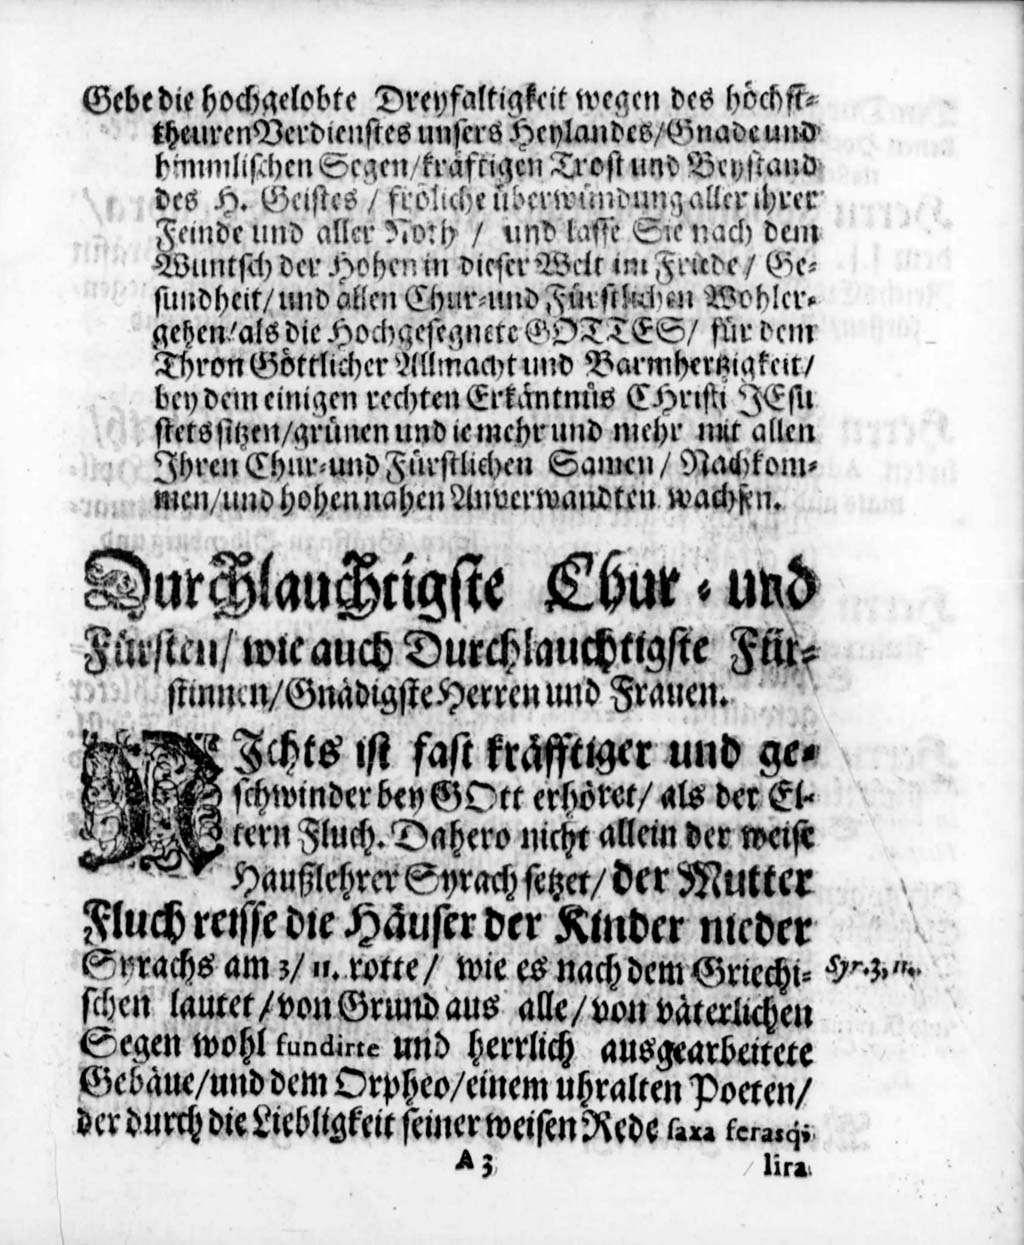 Gebe die hochgelobte Dreyfaltigkeit wegen des höchst-
theuren Verdienstes unsers Heylandes/ Gnade und
himmlischen Segen/ kräftigen Trost und Beystand
des H. Geistes / fröliche überwündung aller ihrer
Feinde und aller Noth / und lasse Sie nach dem
Wuntsch der Hohen in dieser Welt im Friede/ Ge-
sundheit/ und allen Chur-und Fürstlichen Wohler-
gehen/ als die Hochgesegnete GOTTES/ für dem
Thron Göttlicher Allmacht und Barmhertzigkeit/
bey dem einigen rechten Erkäntnüs CHristi JEsu
stets sitzen/ grünen und ie mehr und mehr mit allen
Ihren Chur-und Fürstlichen Samen / Nachkom-
men/ und hohen nahen Anverwandten wachsen.
Durchlauchtigste Chur - und
Fürsten/ wie auch Durchlauchtigste Für-
stinnen/ Gnädigste Herren und Frauen.
NIchts ist fast kräfftiger und ge-
schwinder bey GOtt erhöret/ als der El-
tern Fluch. Dahero nicht allein der weise
Haußlehrer Syrach setzet/ der Mutter
Fluch reisse die Häuser der Kinder nieder
Syrachs am 3/ 11. rotte/ wie es nach dem Griechi-
schen lautet/ von Grund aus alle/ von väterlichen
Segen wohl fundirte und herrlich ausgearbeitete
Gebäue/ und dem Orpheo/ einem uhralten Poeten/
der durch die Liebligkeit seiner weisen Rede saxa ferasq;
Syr. 3, 11.
A 3
lira